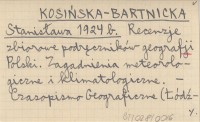 KOSIŃSKA-BARTNICKA
Stanisława 1924 b. Recenzje
zbiorowe podręczników geografji
Polski. Zagadnienia meteorolo-
giczne i klimatologiczne. –
Czasopismo Geograficzne (Łódź-